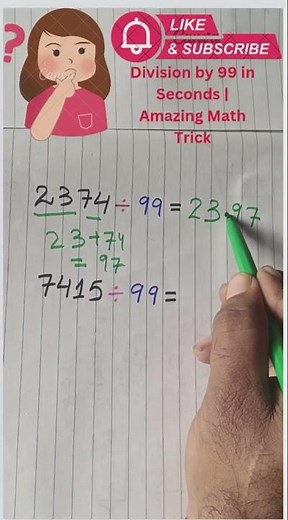 ?
LIKE
& SUBSCRIBE
Canva
Division by 99 in
Seconds |
Amazing Math
Trick
2374 ÷ 99 = 23.97
23+74
= 97
7415 ÷ 99 =